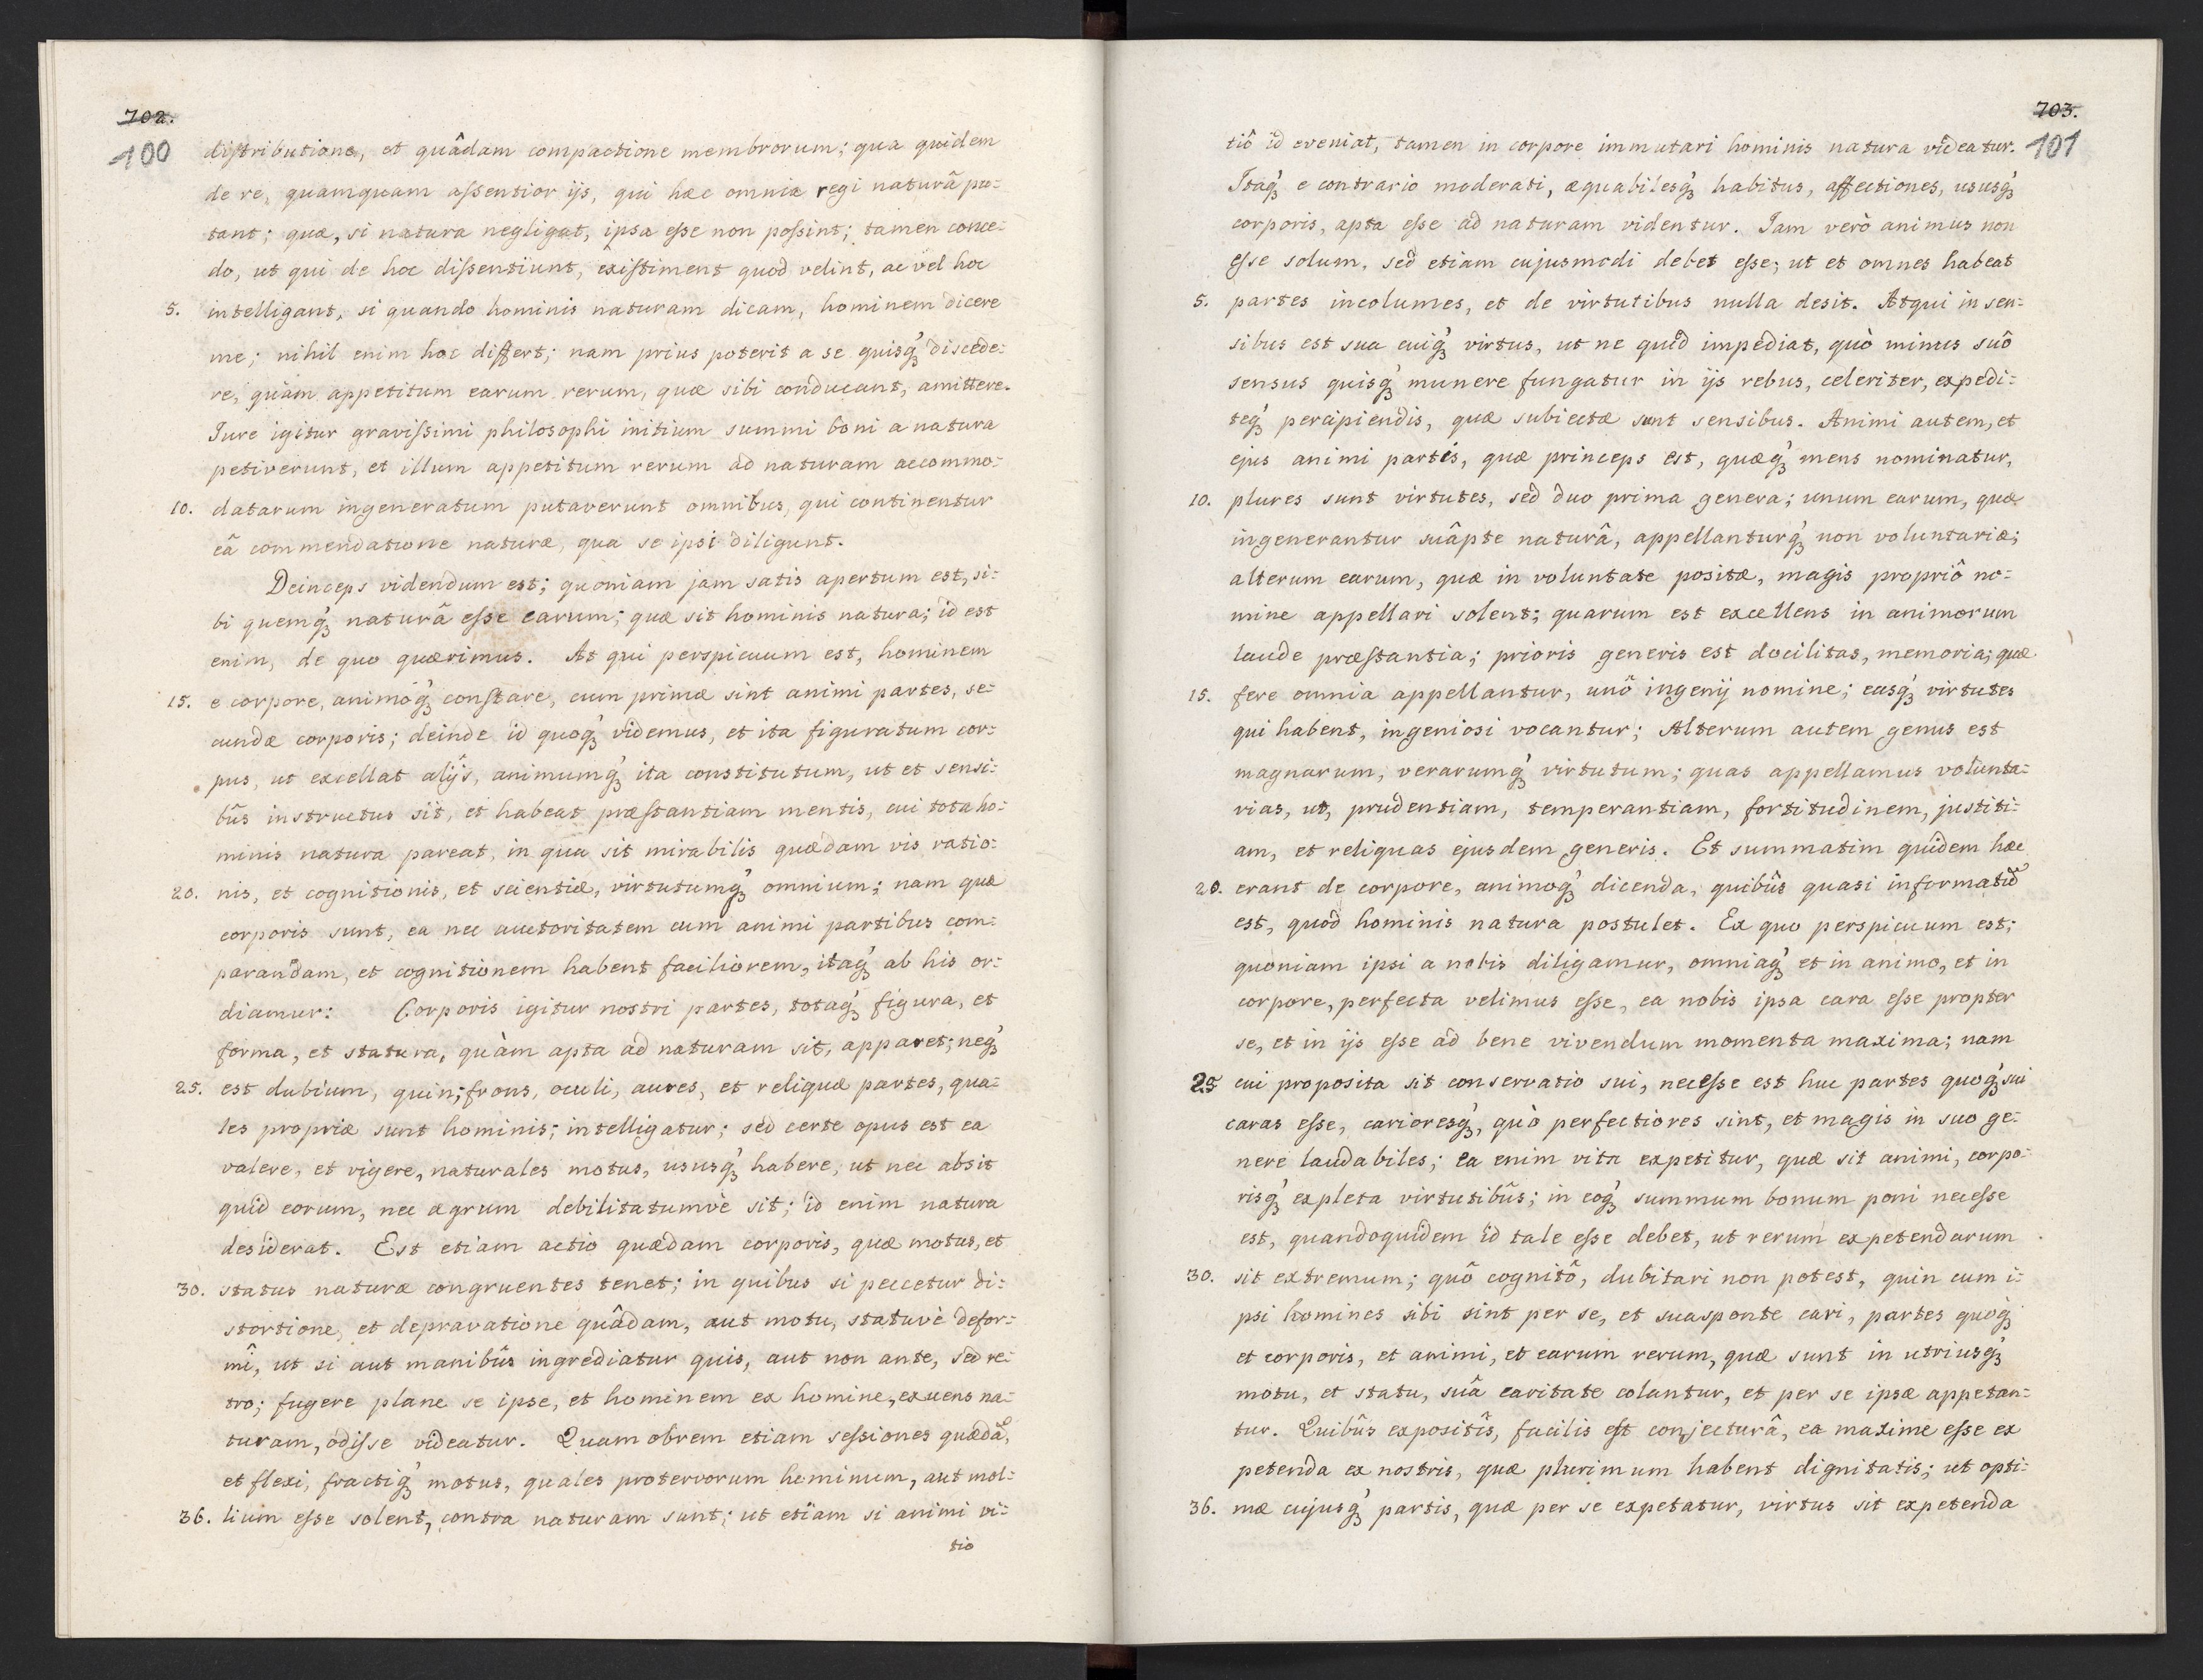 702.
100
distributione, et quâdam compactione membrorum; qua quidem
de re, quamquam assentior ijs, qui hæc omnia regi naturâ pu=
tant; quæ, si natura negligat, ipsa esse non possint; tamen conce=
do, ut qui de hoc dissentiunt, existiment quod velint, ac vel hoc
5. intelligant, si quando hominis naturam dicam, hominem dicere
me; nihil enim hoc differt; nam prius poterit a se quisq́ꝫ discede=
re, quàm appetitum earum rerum, quæ sibi conducant, amittere.
Iure igitur gravissimi philosophi initium summi boni a natura
petiverunt, et illum appetitum rerum ad naturam accommo=
10. datarum ingeneratum putaverunt omnibus, qui continentur
eâ commendatione naturæ, qua se ipsi diligunt.
Deinceps videndum est; quoniam jam satis apertum est, si=
bi quemq́ꝫ naturâ esse carum; quæ sit hominis natura; id est
enim, de quo quærimus. At qui perspicuum est, hominem
15. e corpore, animoq́ꝫ constare, cum primæ sint animi partes, se=
cundæ corporis; deinde id quoq́ꝫ videmus, et ita figuratum cor=
pus, ut excellat alijs, animumq́ꝫ ita constitutum, ut et sensi=
bûs instructus sit, et habeat præstantiam mentis, cui tota ho=
minis natura pareat, in qua sit mirabilis quædam vis ratio=
20. nis, et cognitionis, et scientiæ, virtutumq́ꝫ omnium; nam quæ
corporis sunt, ea nec auctoritatem cum animi partibus com=
parandam, et cognitionem habent faciliorem, itaq́ꝫ ab his or=
diamur: Corporis igitur nostri partes, totaq́ꝫ figura, et
forma, et statura, quàm apta ad naturam sit, apparet; neq́ꝫ
25. est dubium, quin; frons, oculi, aures, et reliquæ partes, qua=
les propriæ sunt hominis; intelligatur; sed certe opus est ea
valere, et vigere, naturales motus, ususq́ꝫ habere, ut nec absit
quid eorum, nec ægrum debilitatumvè sit; id enim natura
desiderat. Est etiam actio quædam corporis, quæ motus, et
30. status naturæ congruentes tenet; in quibus si peccetur di=
stortione, et depravatione quâdam, aut motu, statuvè defor=
mî, ut si aut manibûs ingrediatur quis, aut non ante, sed re=
tro; fugere plane se ipse, et hominem ex homine, exuens na=
turam, odisse videatur. Quam obrem etiam sessiones quædã,
et flexi, fractiq́ꝫ motus, quales protervorum hominum, aut mol=
36. lium esse solent, contra naturam sunt; ut etiam si animi vi=
tio
703.
101
tiô id eveniat, tamen in corpore immutari hominis natura videatur.
Itaq́ꝫ e contrario moderati, æquabilesq́ꝫ habitus, affectiones, ususq́ꝫ
corporis, apta esse ad naturam videntur. Iam verò animus non
esse solum, sed etiam cujusmodi debet esse; ut et omnes habeat
5. partes incolumes, et de virtutibus nulla desit. Atqui in sen=
sibus est sua cuiq́ꝫ virtus, ut ne quid impediat, quò minus suô
sensus quisq́ꝫ munere fungatur in ijs rebus, celeriter, expedi=
teq́ꝫ percipiendis, quæ subiectæ sunt sensibus. Animi autem, et
ejus animi partis, quæ princeps est, quæq́ꝫ mens nominatur,
10. plures sunt virtutes, sed duo prima genera; unum earum, quæ
ingenerantur suâpte naturâ, appellanturq́ꝫ non voluntariæ;
alterum earum, quæ in voluntate positæ, magis propriô no=
mine appellari solent; quarum est excellens in animorum
laude præstantia; prioris generis est docilitas, memoria; quæ
15. fere omnia appellantur, unô ingenij nomine; easq́ꝫ virtutes
qui habent, ingeniosi vocantur; Alterum autem genus est
magnarum, verarumq́ꝫ virtutum; quas appellamus volunta=
rias, ut, prudentiam, temperantiam, fortitudinem, justiti=
am, et reliquas ejusdem generis. Et summatim quidem hæc
20. erant de corpore, animoq́ꝫ dicenda, quibûs quasi informatũ
est, quod hominis natura postulet. Ex quo perspicuum est;
quoniam ipsi a nobis diligamur, omniaq́ꝫ et in animo, et in
corpore, perfecta velimus esse, ea nobis ipsa cara esse propter
se, et in ijs esse ad bene vivendum momenta maxima; nam
25 cui proposita sit conservatio sui, necesse est huc partes quoq́ꝫ sui
caras esse, carioresq́ꝫ, quò perfectiores sint, et magis in suo ge=
nere laudabiles; ea enim vita expetitur, quæ sit animi, corpo=
risq́ꝫ expleta virtutibûs; in eoq́ꝫ summum bonum poni necesse
est, quandoquidem id tale esse debet, ut rerum expetendarum
30. sit extremum; quô cognitô, dubitari non potest, quin cum i=
psi homines sibi sint per se, et suasponte cari, partes quoq́ꝫ
et corporis, et animi, et earum rerum, quæ sunt in utriusq́ꝫ
motu, et statu, suâ caritate colantur, et per se ipsæ appetan=
tur. Quibûs expositîs, facilis est conjecturâ, ea maxime esse ex
petenda ex nostris, quæ plurimum habent dignitatis; ut opti=
36. mæ cujusq́ꝫ partis, quæ per se expetatur, virtus sit expetenda